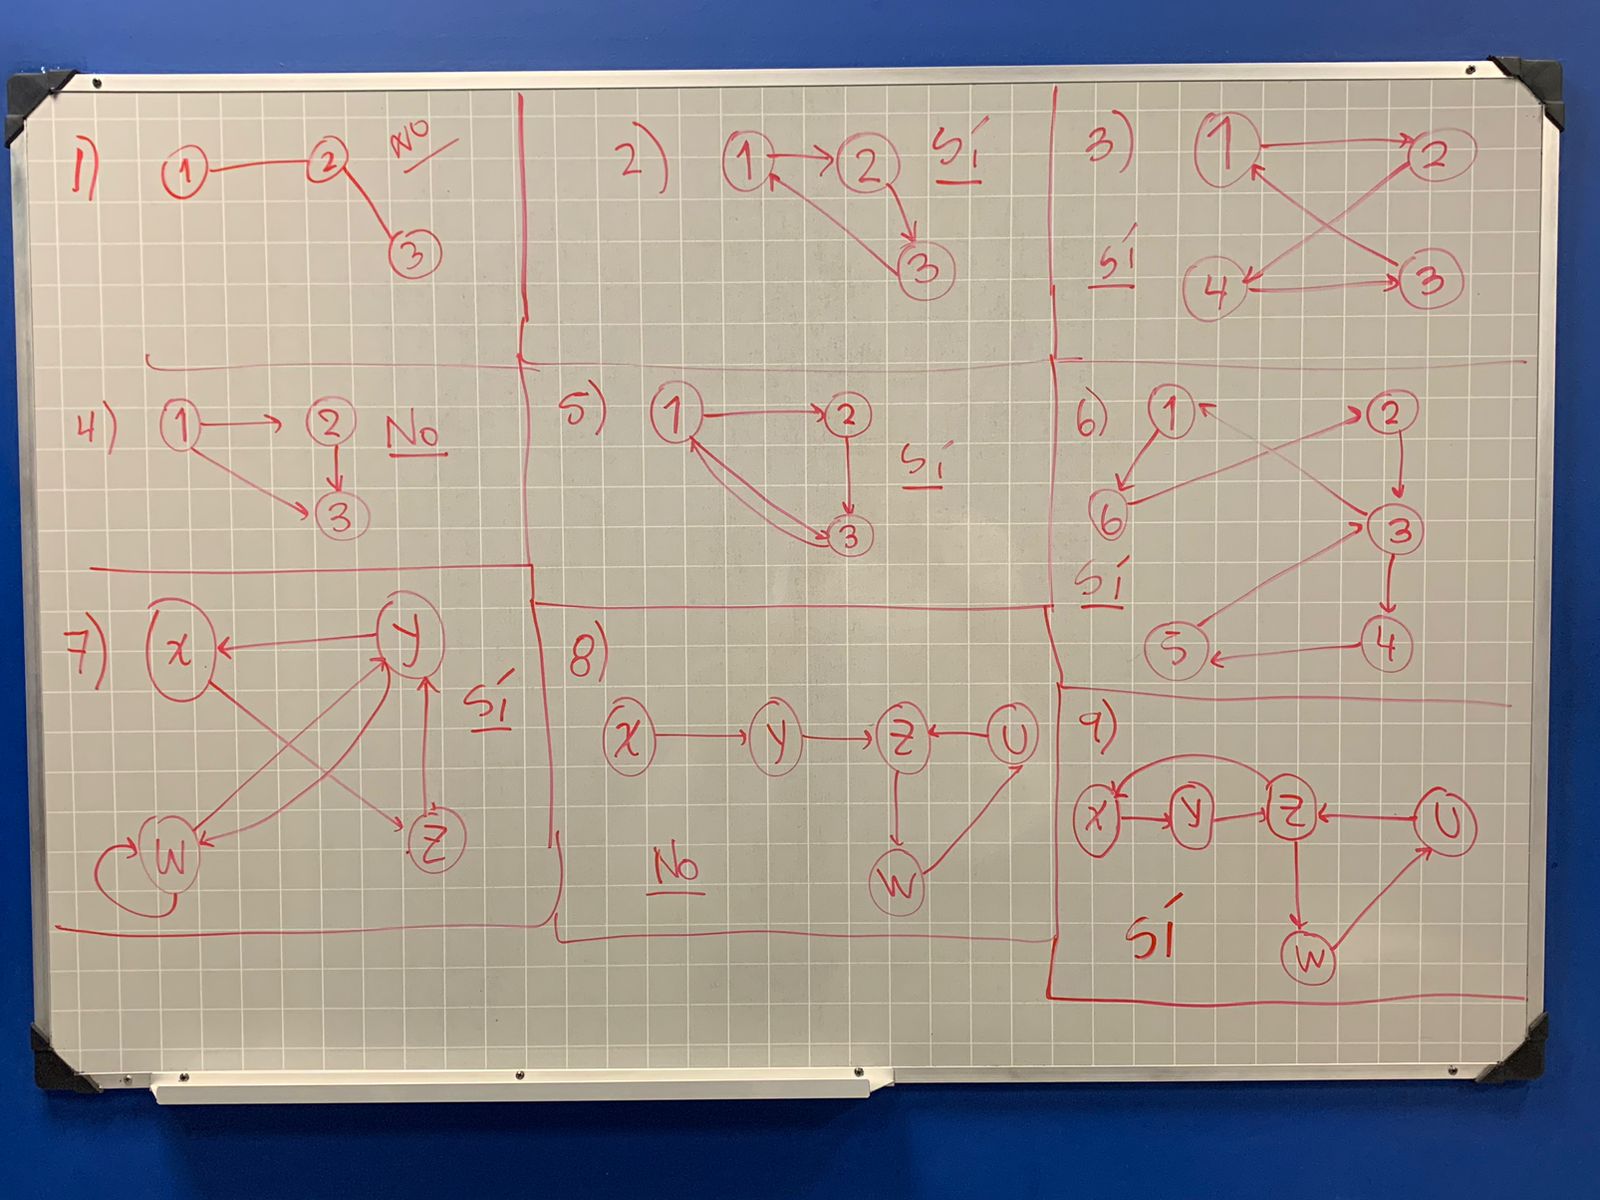 1)
1
2
3
NO
2)
1
2
3
SÍ
3)
1
2
4
3
SÍ
4)
1
2
3
No
5)
1
2
3
SÍ
6)
1
2
6
3
5
4
SÍ
7)
X
Y
W
Z
SÍ
8)
X
Y
Z
U
W
No
9)
X
Y
Z
U
W
SÍ